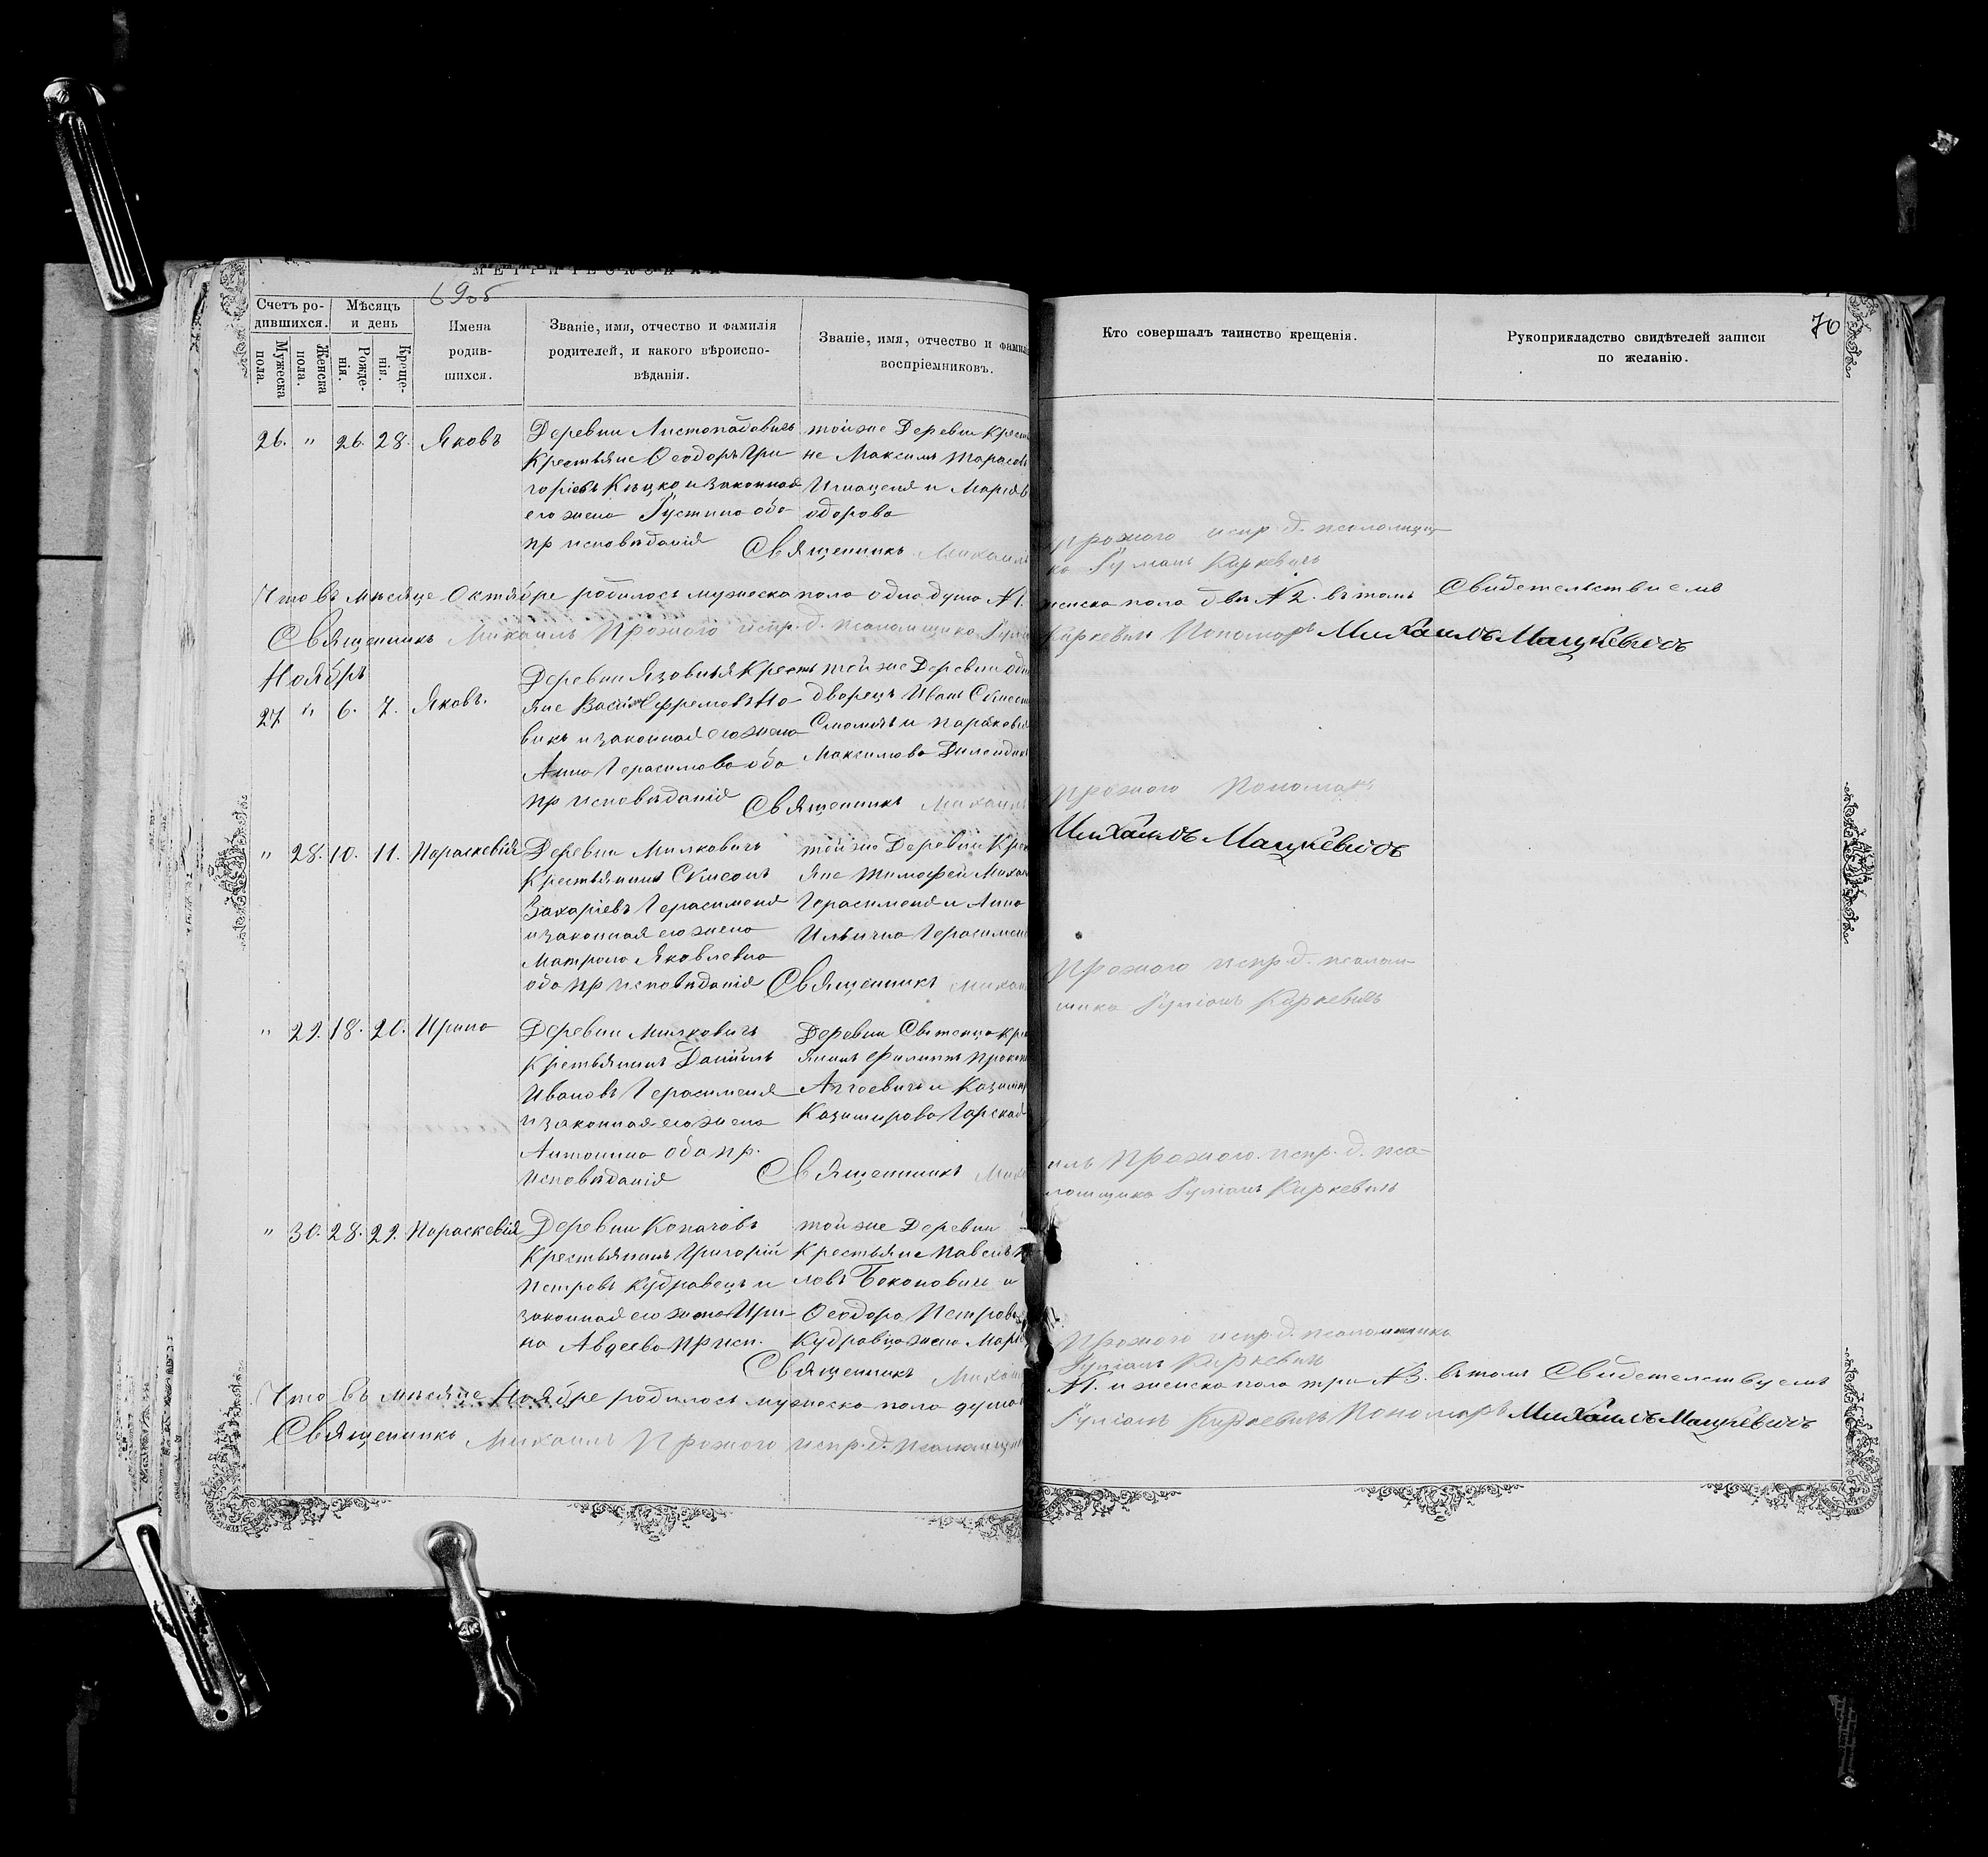 69об
70
Счетъ ро-
дившихся.
Мужеска пола.
Женска пола.
Мѣсяцъ
и день
Рожде-
нія.
Креще-
нія.
Имена
родив-
шихся.
Званіе, имя, отчество и фамилія
родителей, и какого вѣроиспо-
вѣданія.
Званіе, имя, отчество и фамил
воспріемниковъ.
Кто совершалъ таинство крещенія.
Рукоприкладство свидѣтелей записи
по желанію.
26. " 26. 28. Яковъ
Деревни Листопадовичъ
Крестьяне Ѳеодоръ Гри
горіевъ Куцко и законная
его жена Іустина оба
пр исповѣданія
тойже Деревни Крест
не Максимъ Тарасов
Игнаценя и Марія
одорова
Священникъ Михаилъ
Прожого испр. д. псаломщи
ка Іуліанъ Киркевичъ
Что въ мѣсяце Октябре родилось мужеска пола одна душа №1. женска пола двѣ №2. въ томъ Свидетельствуемъ
Священникъ Михаилъ Прожого испр. д. псаломщика Іулі Киркевичъ Пономаръ Михаилъ Мацкевичъ
Ноябрь
27 " 6. 7. Яковъ.
Деревни Язовця Кресть
яне Василій Ефремовъ Но-
викъ и законная его жена
Анна Герасимова оба
пр исповѣданія
тойже Деревни одн
дворецъ Иванъ
и Параскевія
Максимова
Священникъ Михаилъ
Прожого Пономарь
Михаилъ Мацкевичъ
" 28. 10. 11. Параскевія
Деревни Милковичъ
Крестьянинъ Сѵмеонъ
Захаріевъ Герасименя
и законная его жена
Матрона Яковлевна
оба пр исповѣданія
тойже Деревни Крес
яне Тимофей Миха
Герасименя и Анна
Ильична Герасимен
Священникъ Миха
Прожого испр. д. псалом
щика Іуліанъ Киркевичъ
" 29. 18. 20. Ирина
Деревни Милковичъ
Крестьянинъ Даніилъ
Ивановъ Герасименя
и законная его жена
Антонина оба пр.
исповѣданія
Деревни Свѣтица Кре
янинъ Филиппъ Проко
и Казими
Казимирова Горская
Священникъ Миха
илъ Прожого. испр. д. пса
ломщика Іуліанъ Киркевичъ
" 30. 28. 29. Параскевія
Деревни Копачовъ
Крестьянинъ Григорій
Петровъ Кудравецъ и
законная его жена Ири-
на Авдеева пр исп.
тойже Деревни
Крестьяне Павелъ
ловъ Боконовичъ и
Ѳеодора Петрова
Кудравца жена Мар
Священникъ Миха
Прожого испр. д. псаломщика
Іуліанъ Киркевичъ
Что въ мѣсяце Ноябре родилось мужеска пола душа №1. и женска пола три №3. въ томъ Свидетельствуемъ
Священникъ Михаилъ Прожого испр. д. псаломщи Іуліанъ Киркевичъ Пономаръ Михаилъ Мацкевичъ